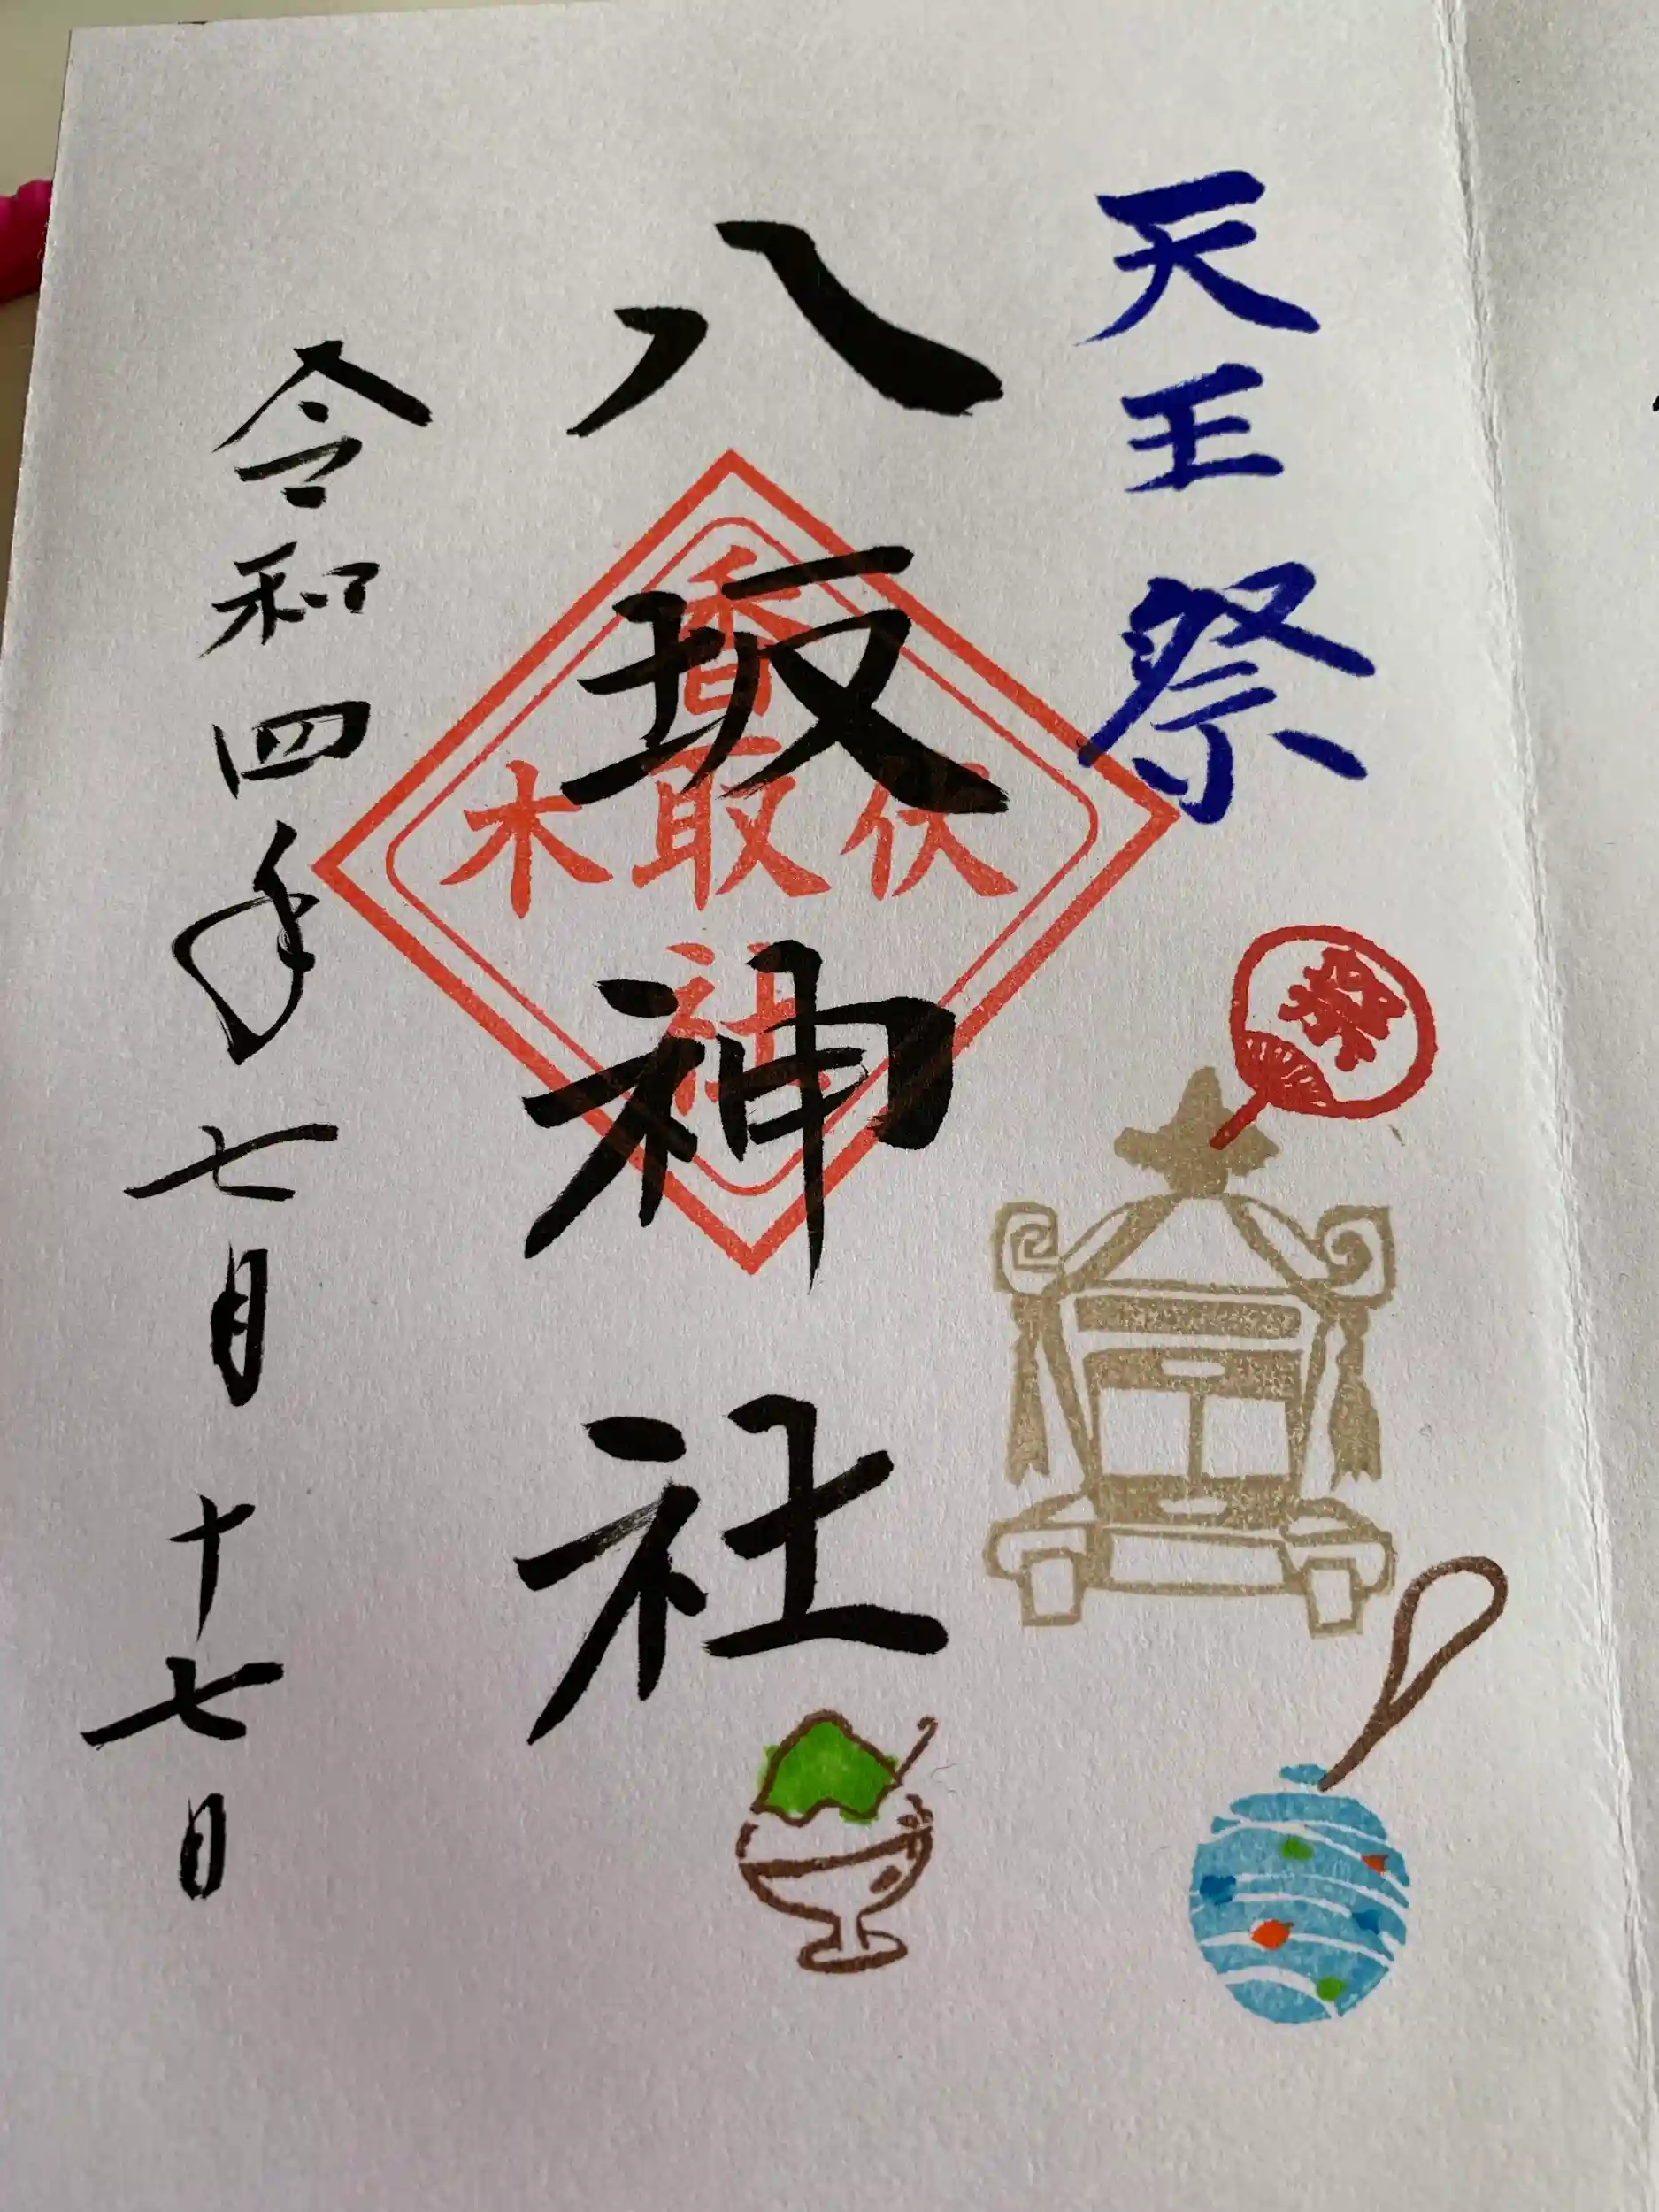 天王祭
祭
八坂神社
香取
伏木
社
令和四年七月十七日